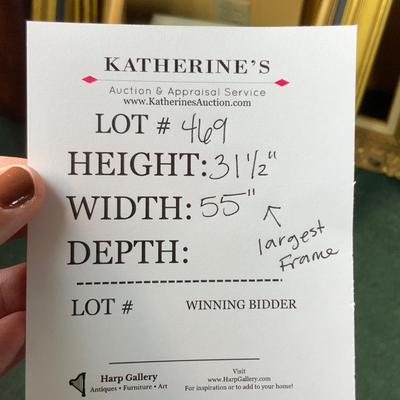 KATHERINE'S
Auction & Appraisal Service
www.KatherinesAuction.com
LOT # 469
HEIGHT: 31 1/2"
WIDTH: 55"
largest
Frame
DEPTH:
LOT #
WINNING BIDDER
Harp Gallery
Antiques • Furniture • Art
Visit
www.HarpGallery.com
For inspiration or to add to your home!